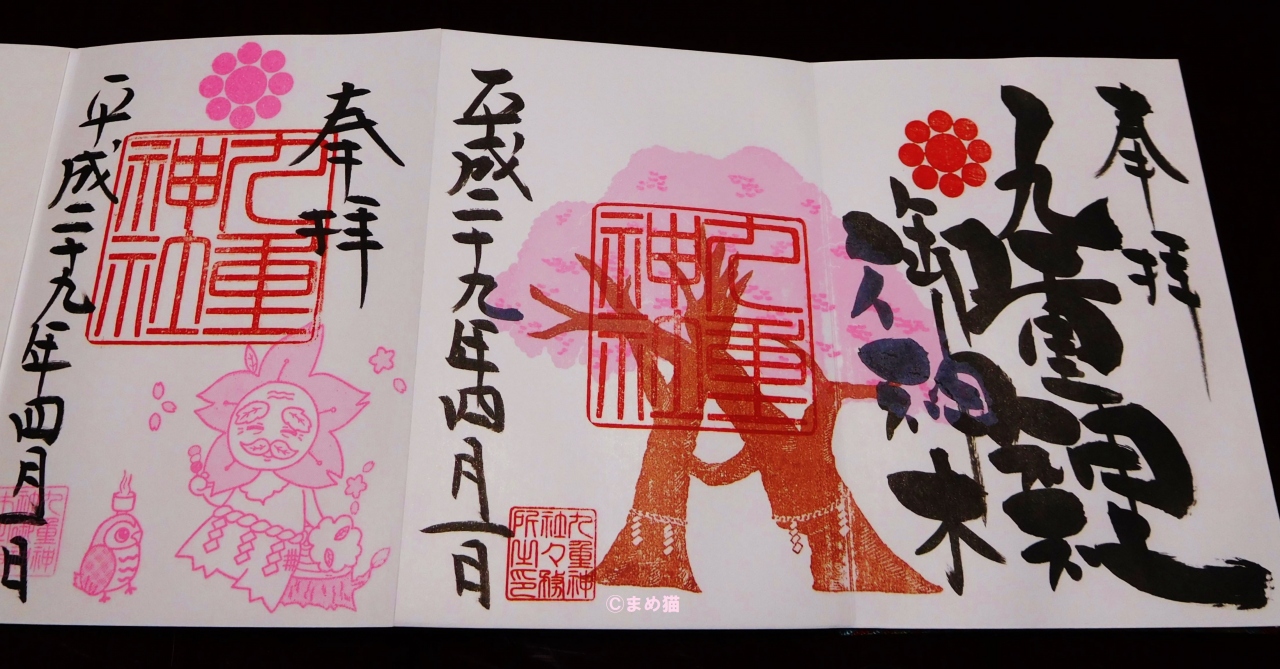 奉拝
九重神社
御神木
九重
神社
平成二十九年四月一日
九重神
社々務
所之印
©まめ猫
奉拝
九重
神社
平成二十九年四月一日
九重神